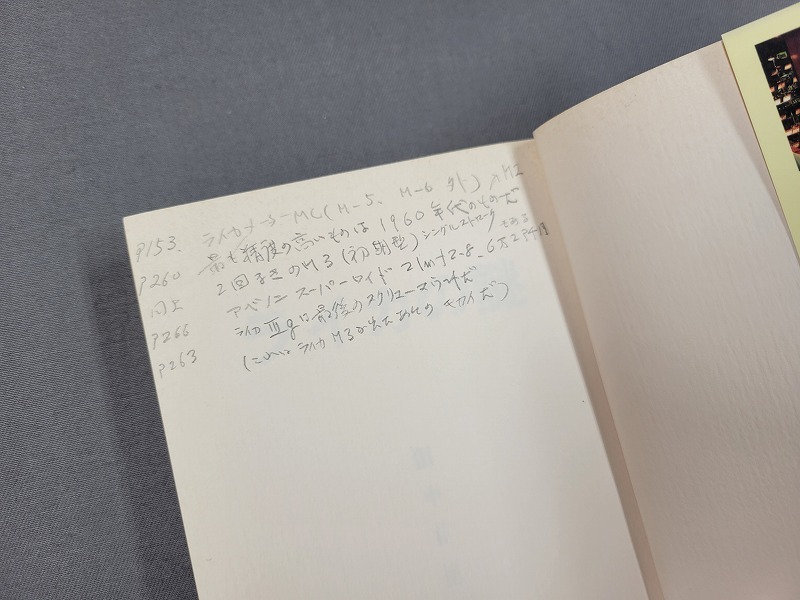 P153. ライカ →MC(M-5、M-6 外) M2
P260 最も精度の高いものは1960年代のものだ
同上 2回巻きのM3(初期型)シングルストローク もある
P266 アベノン スーパーワイド 21m f2.8 6万2千円
P263 ライカ Ⅲgは最後のスクリューマウントだ
(これは ライカM3が出たあとの だ)